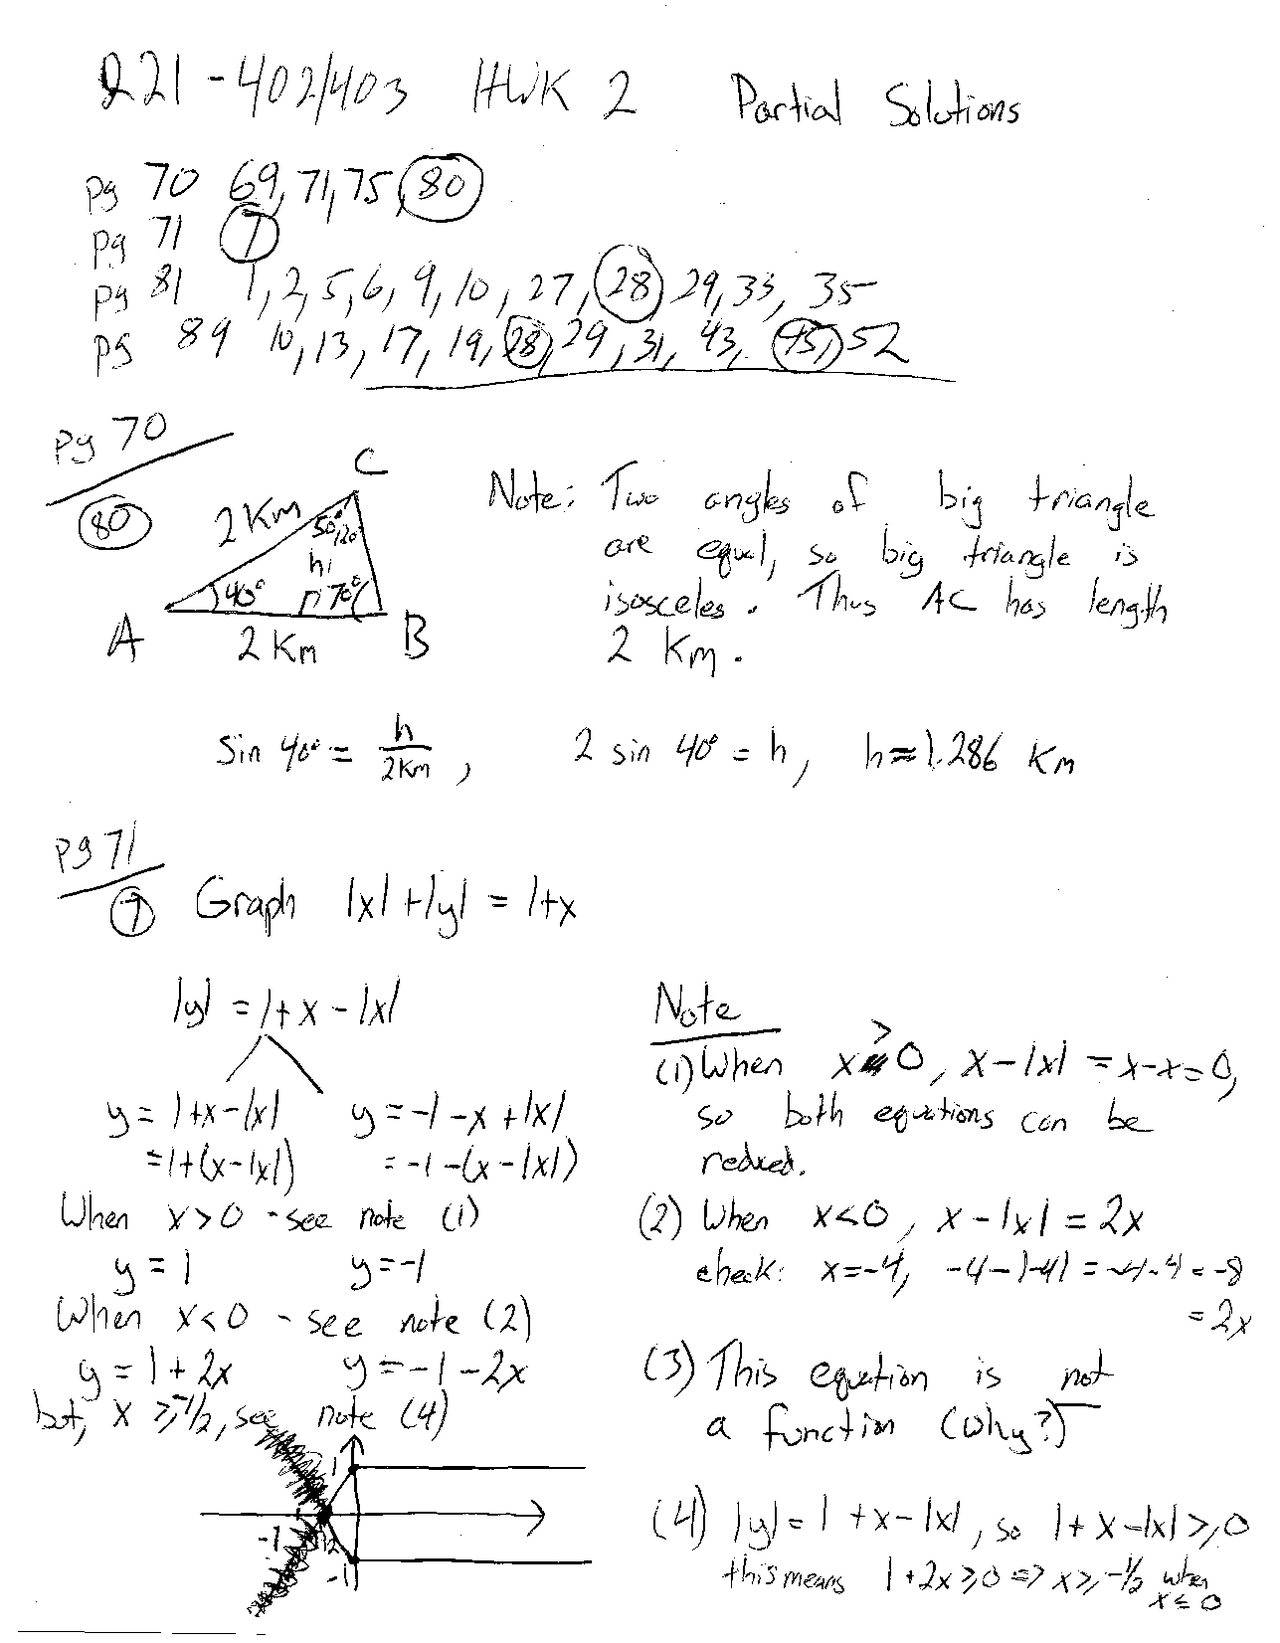 221-402/403 HWK 2 Partial Solutions
pg 70 69, 71, 75, 80
pg 71 7
pg 81 1, 2, 5, 6, 9, 10, 27, 28, 29, 33, 35
pg 89 10, 13, 17, 19, 28, 29, 31, 43, 45, 52
pg 70
80
C
2 Km
50° 20°
h
40° 70°
A 2 Km B
Note: Two angles of big triangle
are equal, so big triangle is
isosceles. Thus AC has length
2 Km.
Sin 40° = h/2Km, 2 sin 40° = h, h ≈ 1.286 Km
pg 71
7 Graph |x| + |y| = 1+x
|y| = 1+x-|x|
y = 1+x-|x| y = -1-x+|x|
=1+(x-|x|) = -1-(x-|x|)
When x>0 - see note (1)
y = 1 y = -1
When x<0 - see note (2)
y = 1+2x y = -1-2x
but, x ≥ -1/2, see note (4)
1
-1 -1/2
-1
Note
(1) When x > 0, x-|x| = x-x=0,
so both equations can be
reduced.
(2) When x<0, x-|x| = 2x
check: x=-4, -4-|-4| = -4-4 = -8
= 2x
(3) This equation is not
a function (Why?)
(4) |y| = 1+x-|x|, so 1+x-|x| ≥ 0
this means 1+2x ≥ 0 => x ≥ -1/2 when
x ≤ 0